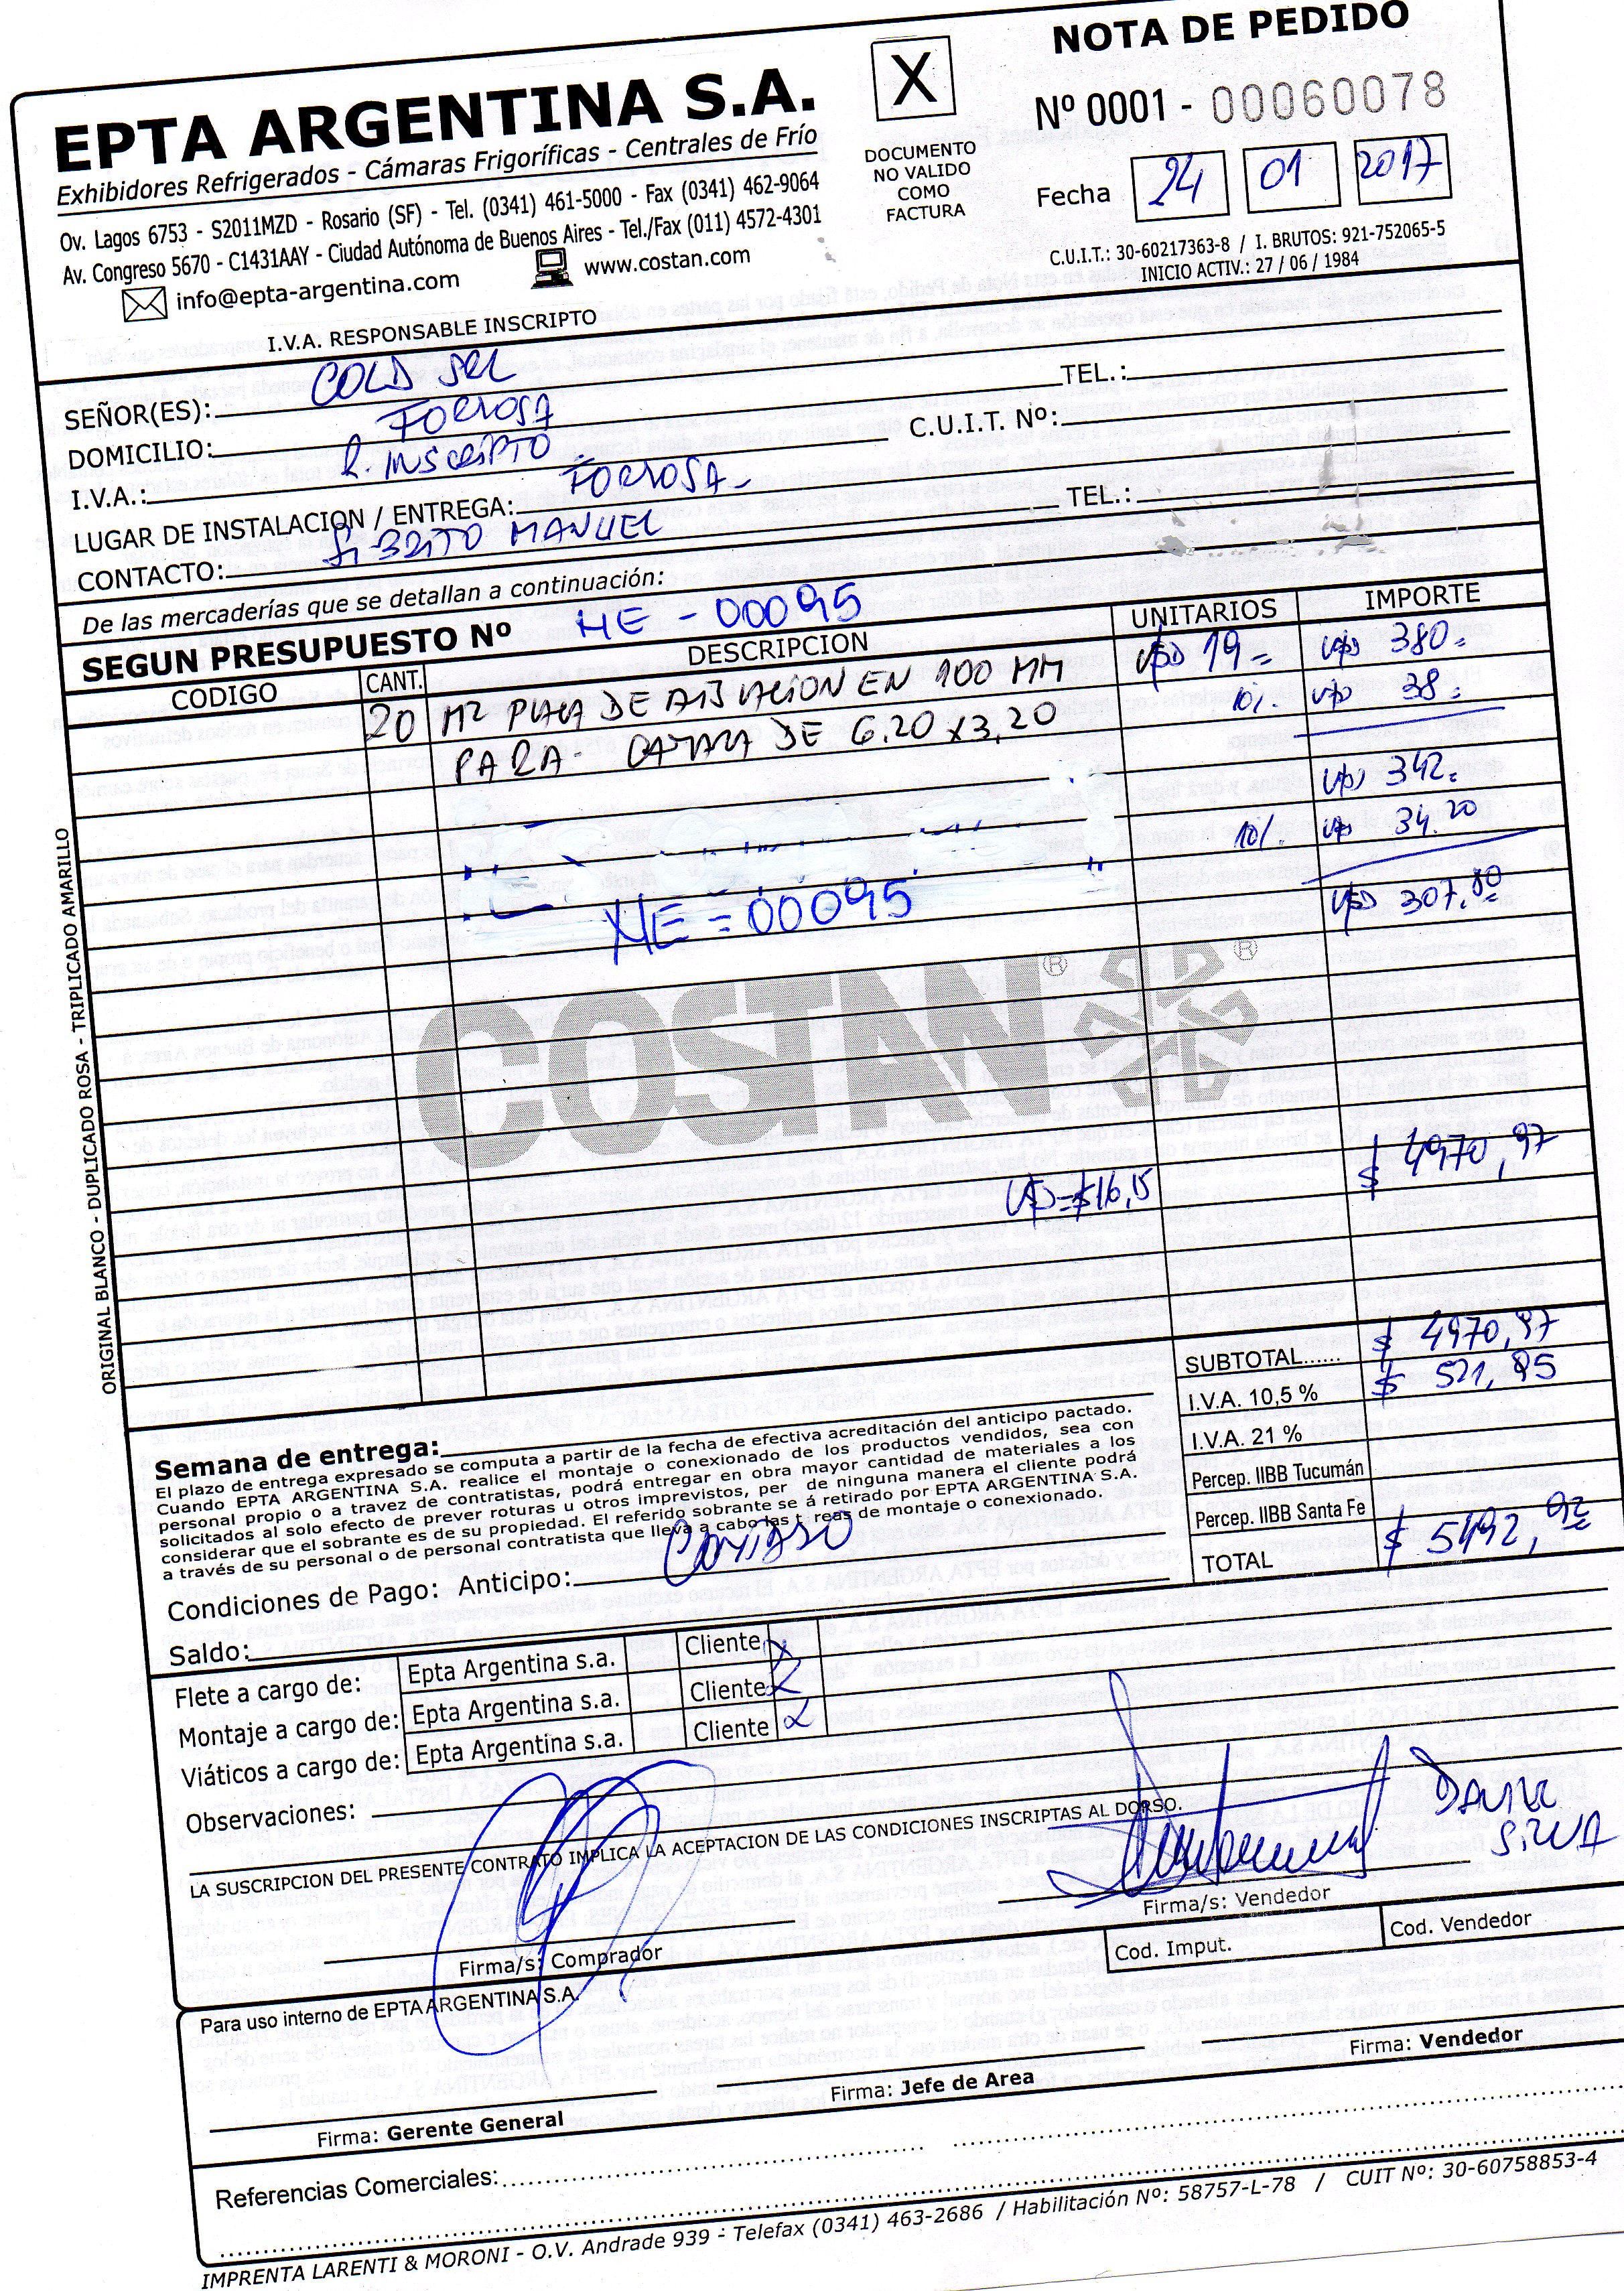 NOTA DE PEDIDO
X
EPTA ARGENTINA S.A.
Nº 0001 - 00060078
Exhibidores Refrigerados - Cámaras Frigoríficas - Centrales de Frío
DOCUMENTO
NO VALIDO
COMO
FACTURA
Fecha 24 01 2017
Ov. Lagos 6753 - S2011MZD - Rosario (SF) - Tel. (0341) 461-5000 - Fax (0341) 462-9064
Av. Congreso 5670 - C1431AAY - Ciudad Autónoma de Buenos Aires - Tel./Fax (011) 4572-4301
info@epta-argentina.com www.costan.com
C.U.I.T.: 30-60217363-8 / I. BRUTOS: 921-752065-5
INICIO ACTIV.: 27 / 06 / 1984
I.V.A. RESPONSABLE INSCRIPTO
SEÑOR(ES): COLD SRL TEL.:
DOMICILIO: FORMOSA
I.V.A.: R. INSCRIPTO C.U.I.T. Nº:
LUGAR DE INSTALACION / ENTREGA: FORMOSA-
CONTACTO: MANUEL TEL.:
De las mercaderías que se detallan a continuación:
SEGUN PRESUPUESTO Nº ME - 00095
CODIGO CANT. DESCRIPCION UNITARIOS IMPORTE
20 M2 PLACA DE AISLACION EN 100 MM USD 19= USD 380=
PARA CAMARA DE 6.20 x 3,20 10% USD 38=
USD 342=
10% USD 34.20
USD 307.80
ME = 00095
COSTAN ® ®
USD=$16,15 $ 4970,97
ORIGINAL BLANCO - DUPLICADO ROSA - TRIPLICADO AMARILLO
SUBTOTAL...... $ 4970,97
I.V.A. 10,5 % $ 521,95
I.V.A. 21 %
Percep. IIBB Tucumán
Percep. IIBB Santa Fe
TOTAL $ 5492,92
Semana de entrega:
El plazo de entrega expresado se computa a partir de la fecha de efectiva acreditación del anticipo pactado.
Cuando EPTA ARGENTINA S.A. realice el montaje o conexionado de los productos vendidos, sea con
personal propio o a travez de contratistas, podrá entregar en obra mayor cantidad de materiales a los
solicitados al solo efecto de prever roturas u otros imprevistos, per de ninguna manera el cliente podrá
considerar que el sobrante es de su propiedad. El referido sobrante se á retirado por EPTA ARGENTINA S.A.
a través de su personal o de personal contratista que lleva a cabo las t reas de montaje o conexionado.
Condiciones de Pago: Anticipo: CONTADO
Saldo:
Flete a cargo de: Epta Argentina s.a. Cliente X
Montaje a cargo de: Epta Argentina s.a. Cliente X
Viáticos a cargo de: Epta Argentina s.a. Cliente X
Observaciones:
LA SUSCRIPCION DEL PRESENTE CONTRATO IMPLICA LA ACEPTACION DE LAS CONDICIONES INSCRIPTAS AL DORSO.
SILVA
Firma/s: Comprador
Firma/s: Vendedor
Cod. Imput. Cod. Vendedor
Para uso interno de EPTA ARGENTINA S.A.
Firma: Gerente General
Firma: Jefe de Area
Firma: Vendedor
Referencias Comerciales:
IMPRENTA LARENTI & MORONI - O.V. Andrade 939 - Telefax (0341) 463-2686 / Habilitación Nº: 58757-L-78 / CUIT Nº: 30-60758853-4